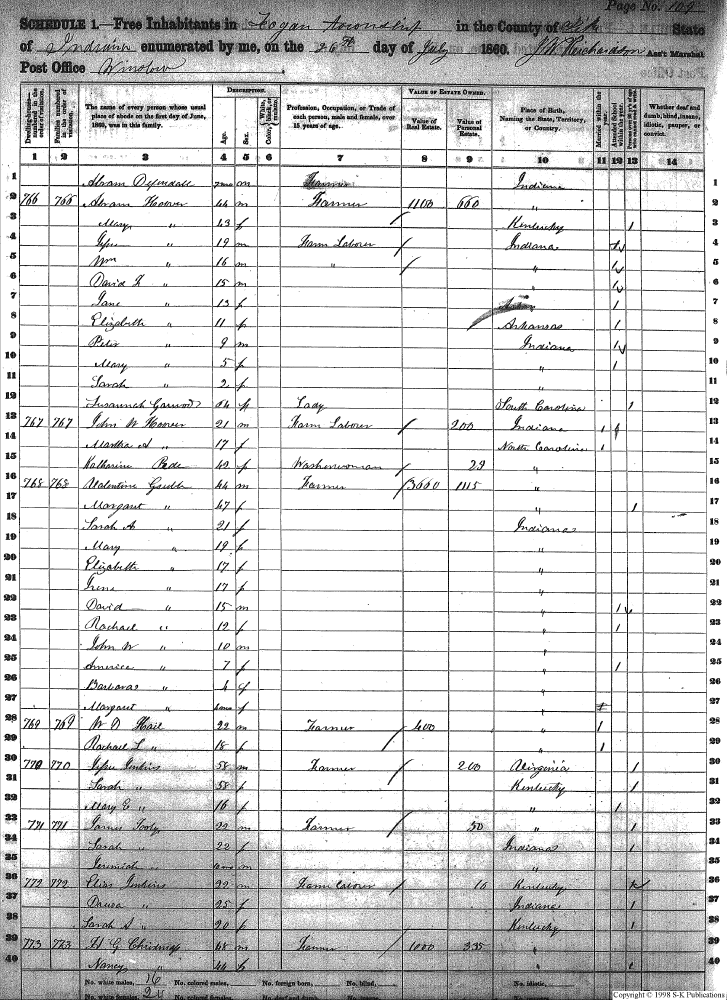 Page No. 109
SCHEDULE 1.—Free Inhabitants in Logan Township in the County of Pike State
of Indiana enumerated by me, on the 26th day of July 1860. Ass't Marshal
Post Office Winslow
Dwelling-houses—numbered in the order of visitation.
Families numbered in the order of visitation.
The name of every person whose usual place of abode on the first day of June, 1860, was in this family.
DESCRIPTION.
Age.
Sex.
Color, White, black, or mulatto.
Profession, Occupation, or Trade of each person, male and female, over 15 years of age.
VALUE OF ESTATE OWNED.
Value of Real Estate.
Value of Personal Estate.
Place of Birth, Naming the State, Territory, or Country.
Married within the year.
Attended School within the year.
Whether deaf and dumb, blind, insane, idiotic, pauper, or convict.
1 2 3 4 5 6 7 8 9 10 11 12 13 14
1 Abram m Farmer Indiana 1
2 766 766 Abram Hoover 44 m Farmer 1100 660 " 2
3 Mary " 43 f / Kentucky 1 3
4 " 19 m Farm Laborer / Indiana 1 4
5 Wm " 16 m " / " 1 5
6 David F " 15 m " 1 6
7 Jane " 13 f 1 7
8 Elizabeth " 11 f Arkansas 1 8
9 Peter " 9 m Indiana 1 9
10 Mary " 5 f " 1 10
11 Sarah " 2 f " 11
12 Susannah Garwood 64 f Lady South Carolina 1 12
13 767 767 John W Hoover 21 m Farm Laborer / 200 Indiana 1 1 13
14 Martha A " 17 f North Carolina 1 14
15 Katharine 49 f Washerwoman / 29 " 15
16 768 768 Valentine 44 m Farmer / 3660 1115 " 16
17 Margaret " 47 f " 1 17
18 Sarah A " 21 f Indiana 18
19 Mary " 19 f " 19
20 Elizabeth " 17 f " 20
21 Irena " 17 f " 21
22 David " 15 m " 1 22
23 Rachael " 12 f " 1 23
24 John W " 10 m " 24
25 America " 7 f " 1 25
26 Barbara " 4 f " 26
27 Margaret " f " 27
28 769 769 W D Hail 22 m Farmer / 400 " 1 28
29 Rachael L " 18 f / " 1 29
30 770 770 Jesse Jenkins 58 m Farmer / 200 Virginia 1 30
31 Sarah " 58 f Kentucky 1 31
32 Mary E " 16 f " 1 32
33 771 771 James 22 m Farmer / 50 " 1 33
34 Sarah " 22 f Indiana 1 34
35 Jeremiah " m " 35
36 772 772 Elias Jenkins 22 m Farm Laborer / 10 Kentucky 36
37 " 25 f Indiana 1 37
38 Sarah A " 20 f Kentucky 1 38
39 773 773 H G 48 m Farmer / 1000 335 " 39
40 Nancy " 44 f " 1 40
No. white males, 16 No. colored males, No. foreign born, No. blind, No. idiotic,
No. white females, 24 No. colored females, No. deaf and dumb,
Copyright © 1998 S-K Publications